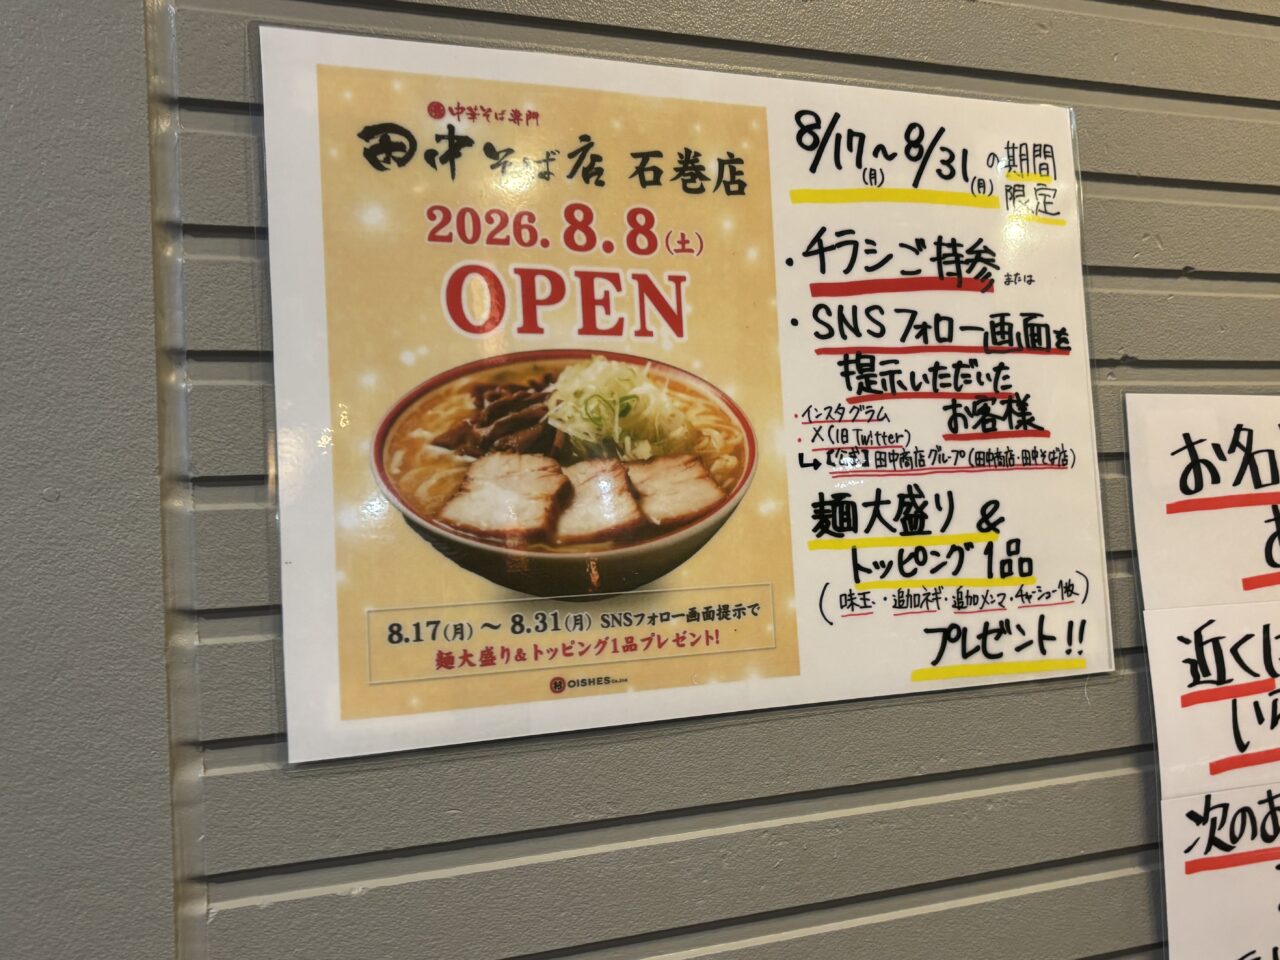 中華そば専門
田中そば店 石巻店
2026.8.8(土)
OPEN
8.17(月)～8.31(月) SNSフォロー画面提示で
麺大盛り&トッピング1品プレゼント!
OISHES Co.,Ltd
8/17(月)～8/31(月)の期間限定
・チラシご持参 または
・SNSフォロー画面を
提示いただいた
お客様
・インスタグラム
・X(旧Twitter)
↳【公式】田中商店グループ(田中商店・田中そば店)
麺大盛り &
トッピング1品
(味玉・追加ネギ・追加メンマ・チャーシュー1枚)
プレゼント!!
お名
近くに
次のお